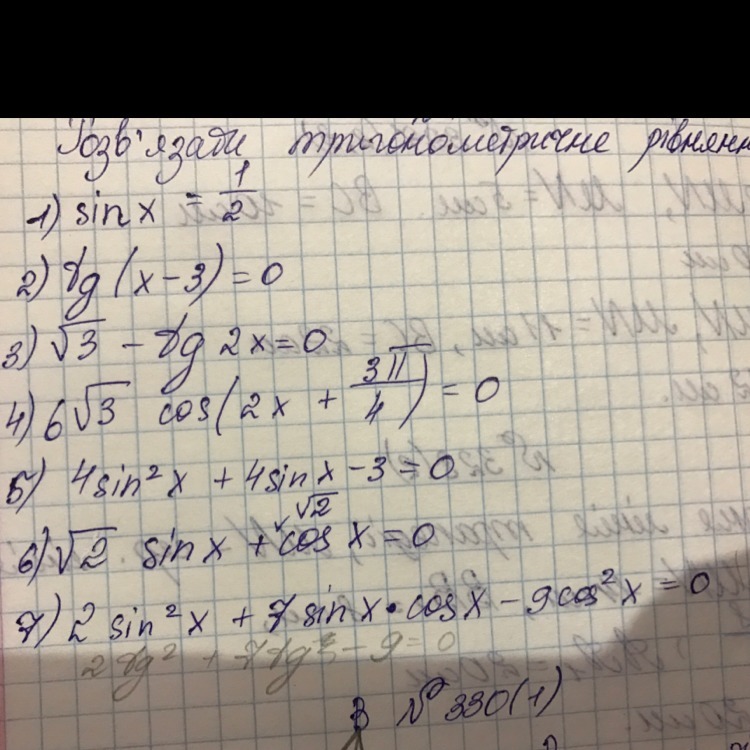 Розв'язати тригонометричне рівнянн
1) sin x = 1/2
2) tg (x - 3) = 0
3) √3 - tg 2x = 0
4) 6√3 cos(2x + 3π/4) = 0
5) 4 sin² x + 4 sin x - 3 = 0
√2
6) √2 sin x + cos x = 0
7) 2 sin² x + 7 sin x • cos x - 9 cos² x = 0
2 tg² + 7 tg - 9 = 0
В № 330(1)